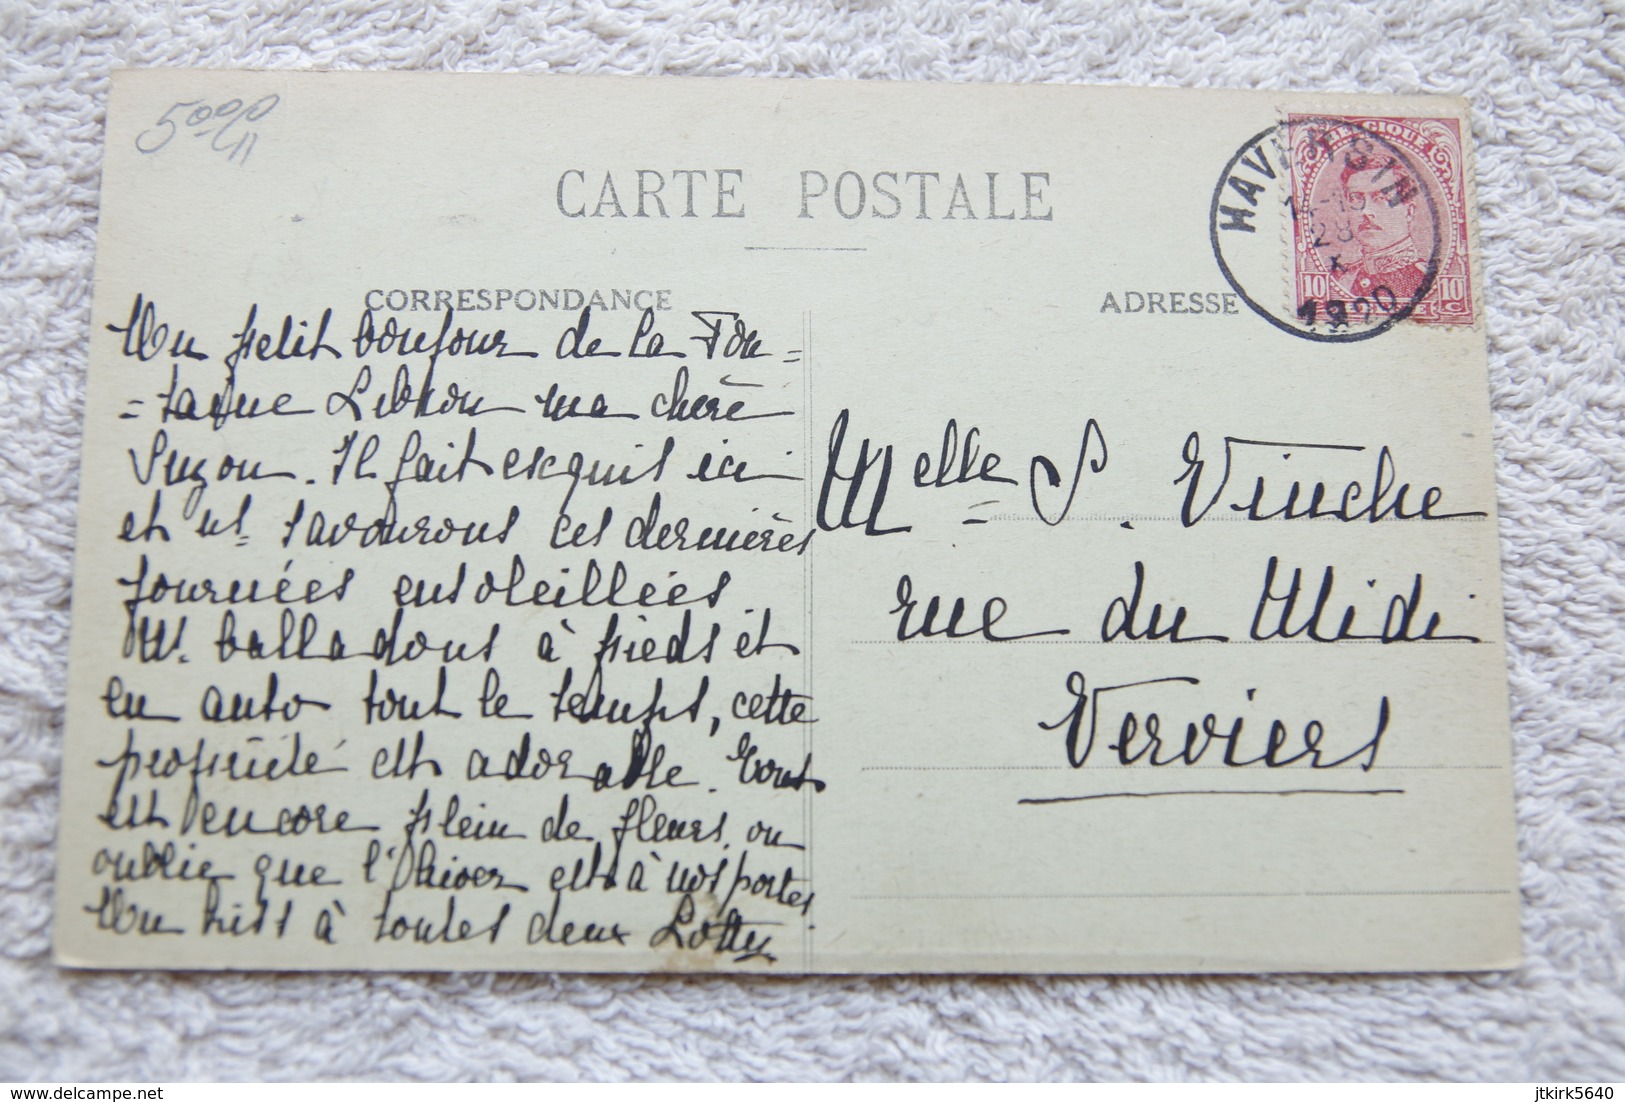 CARTE POSTALE
CORRESPONDANCE
ADRESSE
BELGIQUE
10 10
HAVERSIN
28
X
1920
Un petit bonjour de la Fon=
=taine Lebrou ma chère
Suzon. Il fait exquis ici
et ns= savourons ces dernières
journées ensoleillées
Ns. balladons à pieds et
en auto tout le temps, cette
propriété est adorable. Tout
est encore plein de fleurs, on
oublie que l'hiver est à nos portes
Un kiss à toutes deux Lotty
Melle= S. Vinche
rue du Midi
Verviers
delcampe.net
jtkirk5640